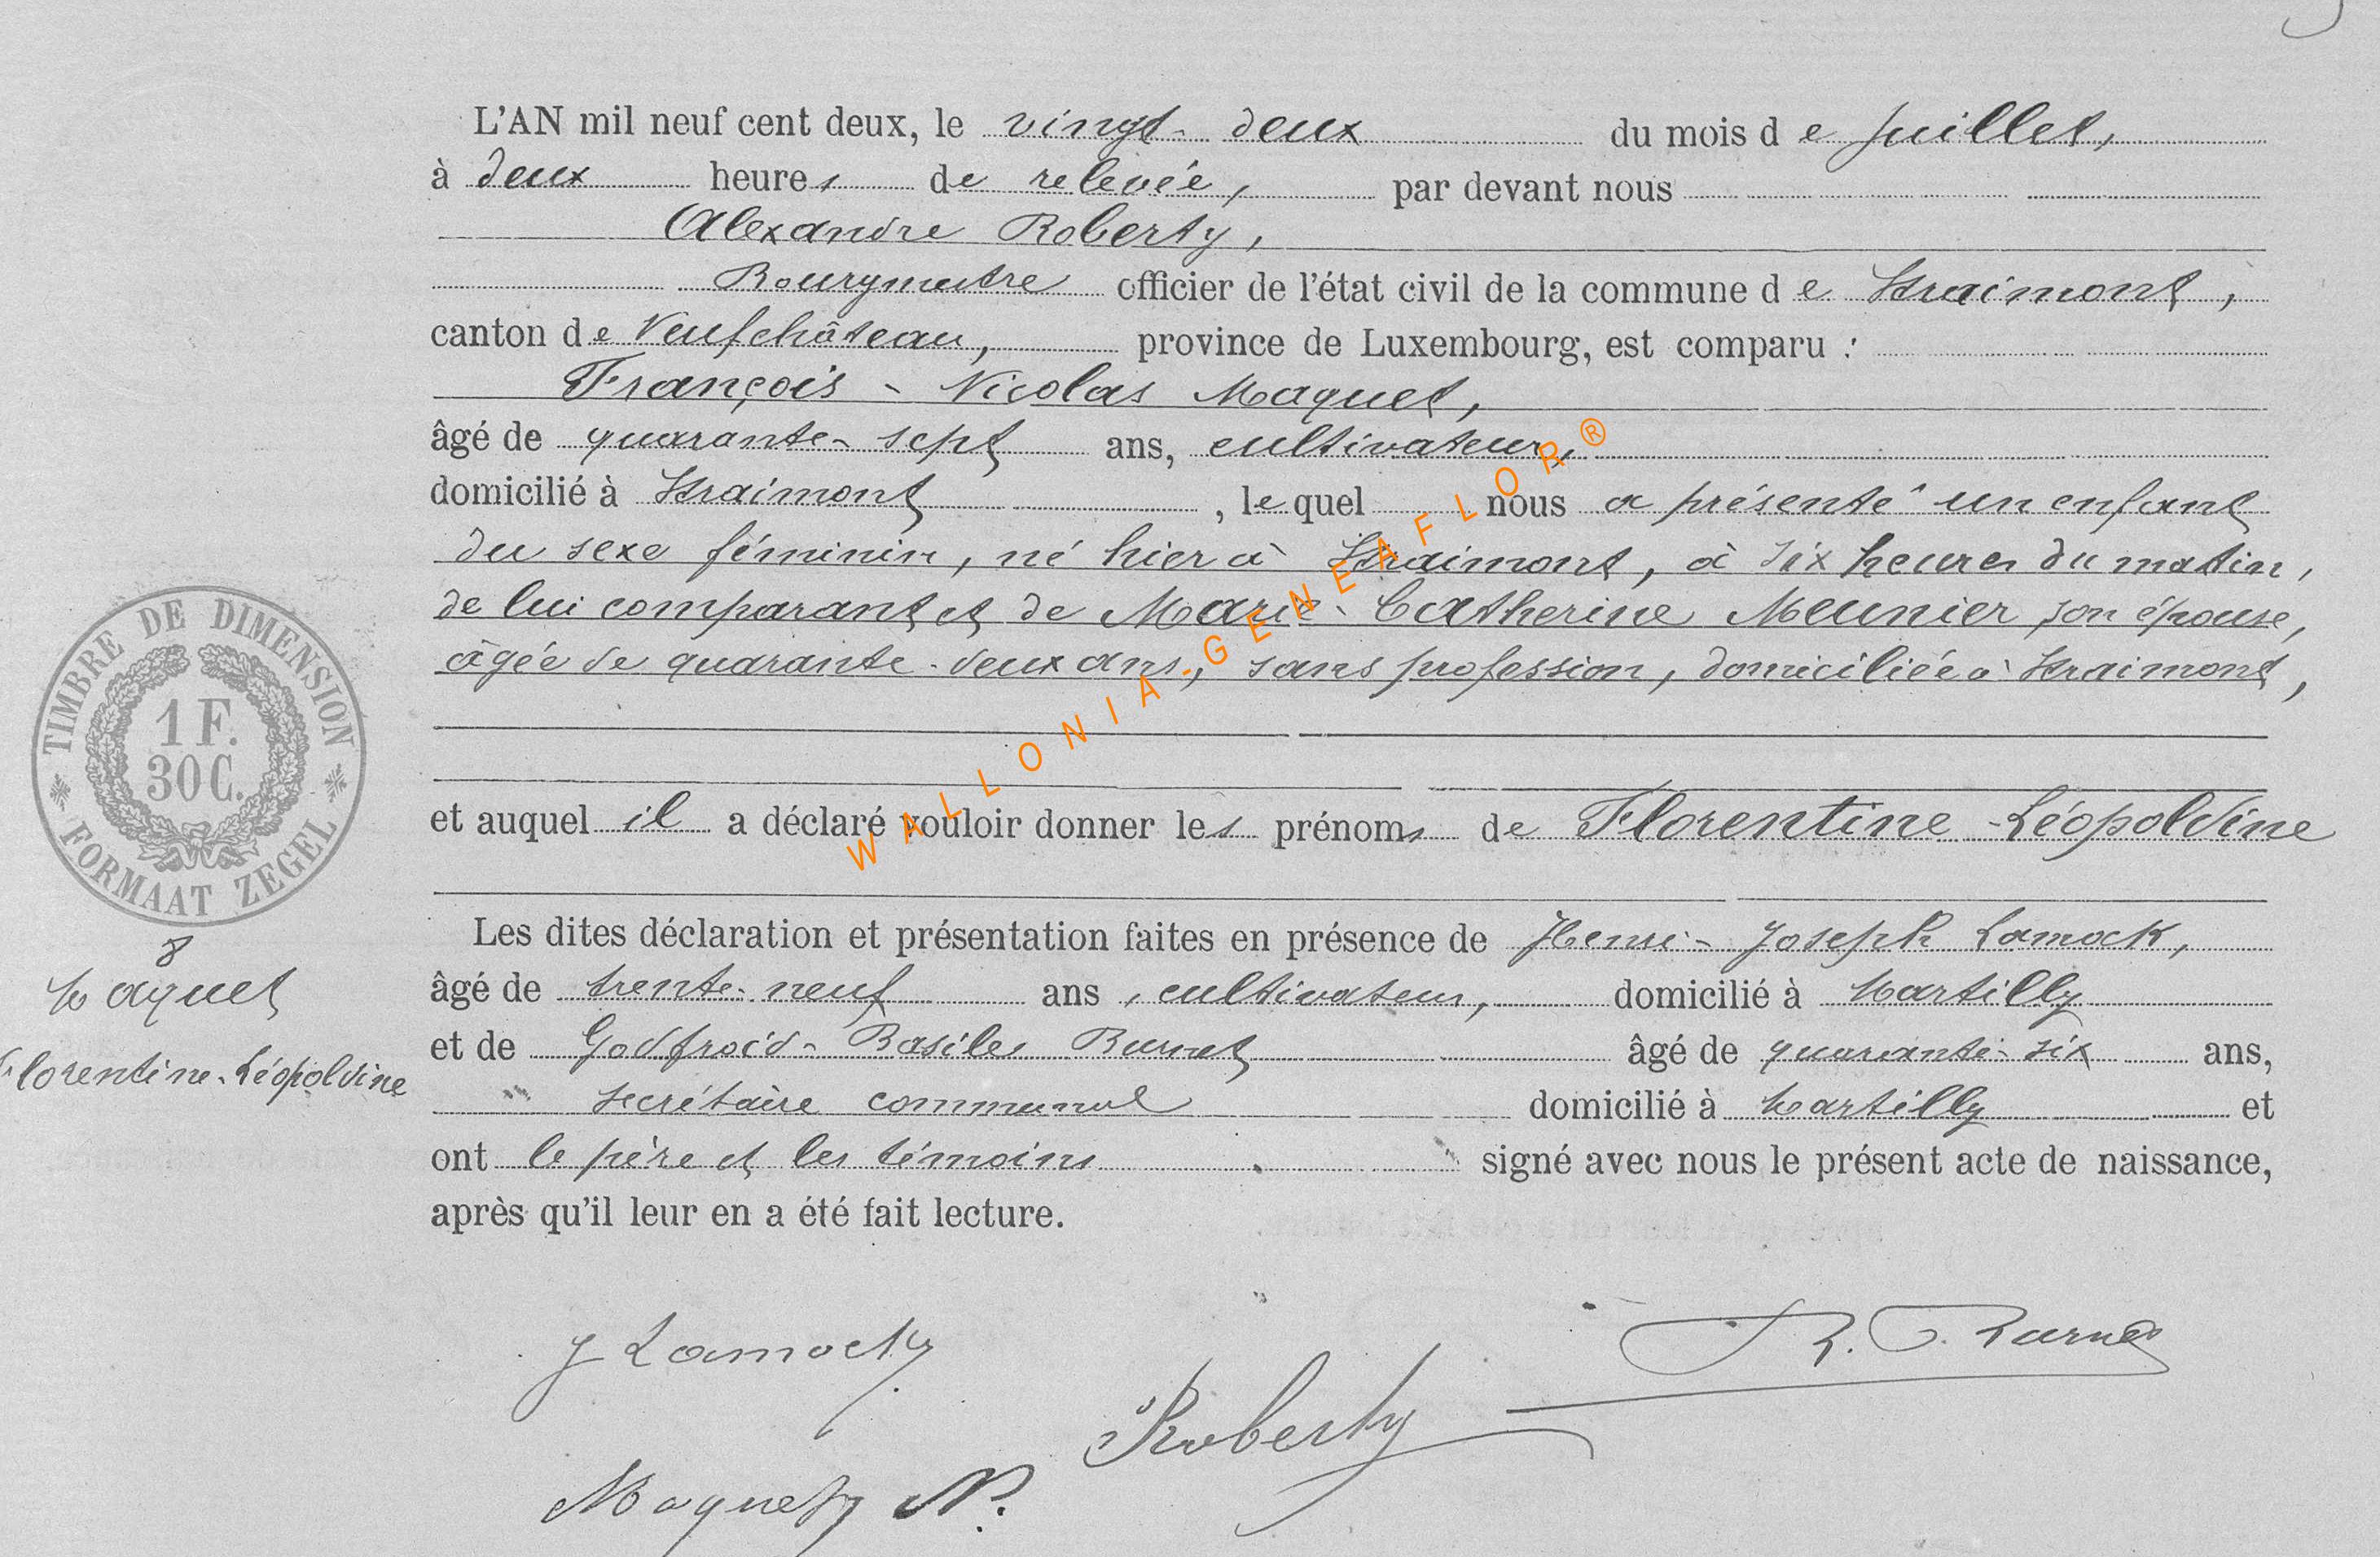 L'AN mil neuf cent deux, le vingt-deux du mois de Juillet,
à deux heures de relevée, par devant nous
Alexandre Roberty,
Bourgmestre officier de l'état civil de la commune de Straimont,
canton de Neufchâteau, province de Luxembourg, est comparu :
François-Nicolas Maquet,
âgé de quarante-sept ans, cultivateur,
domicilié à Straimont, lequel nous a présenté un enfant
du sexe féminin, né hier à Straimont, à six heures du matin,
de lui comparant et de Marie-Catherine Meunier son épouse,
âgée de quarante-deux ans, sans profession, domiciliée à Straimont,
et auquel il a déclaré vouloir donner les prénoms de Florentine-Léopoldine
Les dites déclaration et présentation faites en présence de Henri-Joseph Lamock,
âgé de trente-neuf ans, cultivateur, domicilié à Martilly
et de Godfroid-Basile Burnet âgé de quarante-six ans,
secrétaire communal domicilié à Martilly et
ont le père et les témoins signé avec nous le présent acte de naissance,
après qu'il leur en a été fait lecture.
TIMBRE DE DIMENSION
1 F.
30 C.
FORMAAT ZEGEL
8
Maquet
Florentine-Léopoldine
J Lamock
Roberty
Maquet N.
WALLONIA-GENEAFLOR®